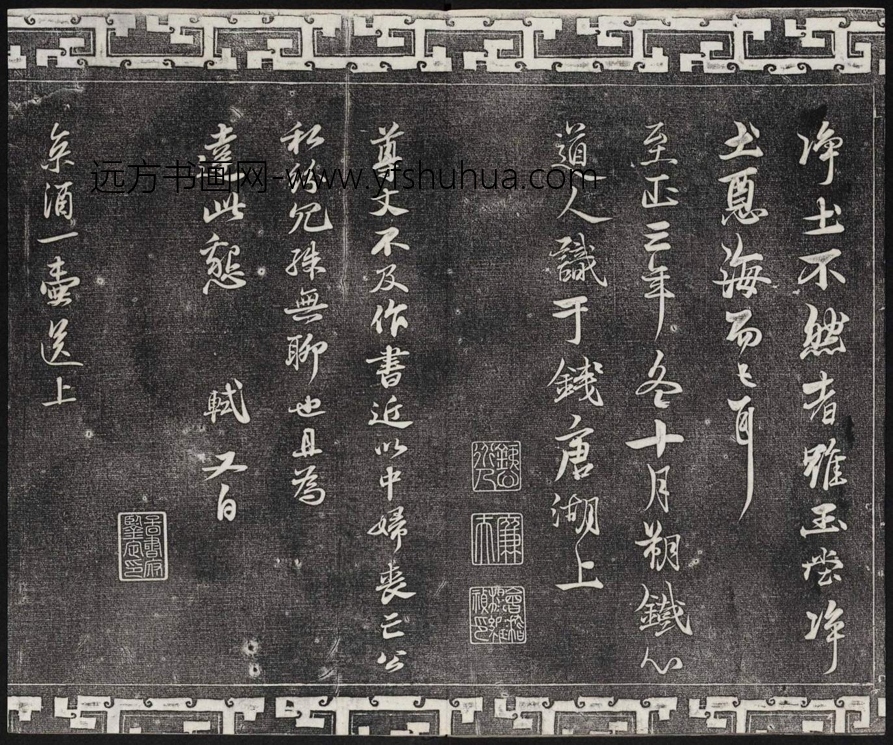 净土不然者雖玉堂净
土惡海而已耳
至正三年冬十月朔鐵心
道人識于錢唐湖上
尊丈不及作書近以中婦喪亡公
私紛冗殊無聊也且為
達此懇 軾又白
京酒一壺送上
远方书画网-www.yfshuhua.com